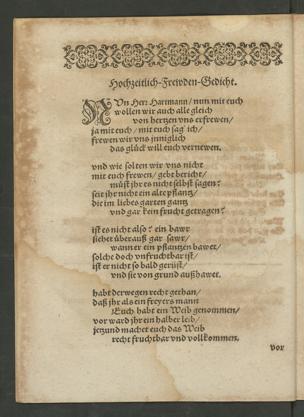 Hochzeitlich-Frewden-Gedicht.
NUn Herr Hartmann/ nun mit euch
wollen wir auch alle gleich
von hertzen vns erfrewen/
ja mit euch/ mit euch sag ich/
frewen wir vns jnniglich
das glück will euch vernewen.
vnd wie solten wir vns nicht
mit euch frewen/ gebt bericht/
müst jhr es nicht selbst sagen?
seit jhr nicht ein alte pflantz/
die im liebes garten gantz
vnd gar kein frucht getragen?
ist es nicht also? ein bawr
siehet überauß gar sawr/
wann er ein pflantzen hawet/
solche doch vnfruchtbar ist/
ist er nicht so bald gerüst/
vnd sie von grund außhawet.
habt derwegen recht gethan/
daß jhr als ein freyers mann
Euch habt ein Weib genommen/
vor ward jhr ein halber leib/
jetzund machet euch das Weib
recht fruchtbar vnd vollkommen.
vor